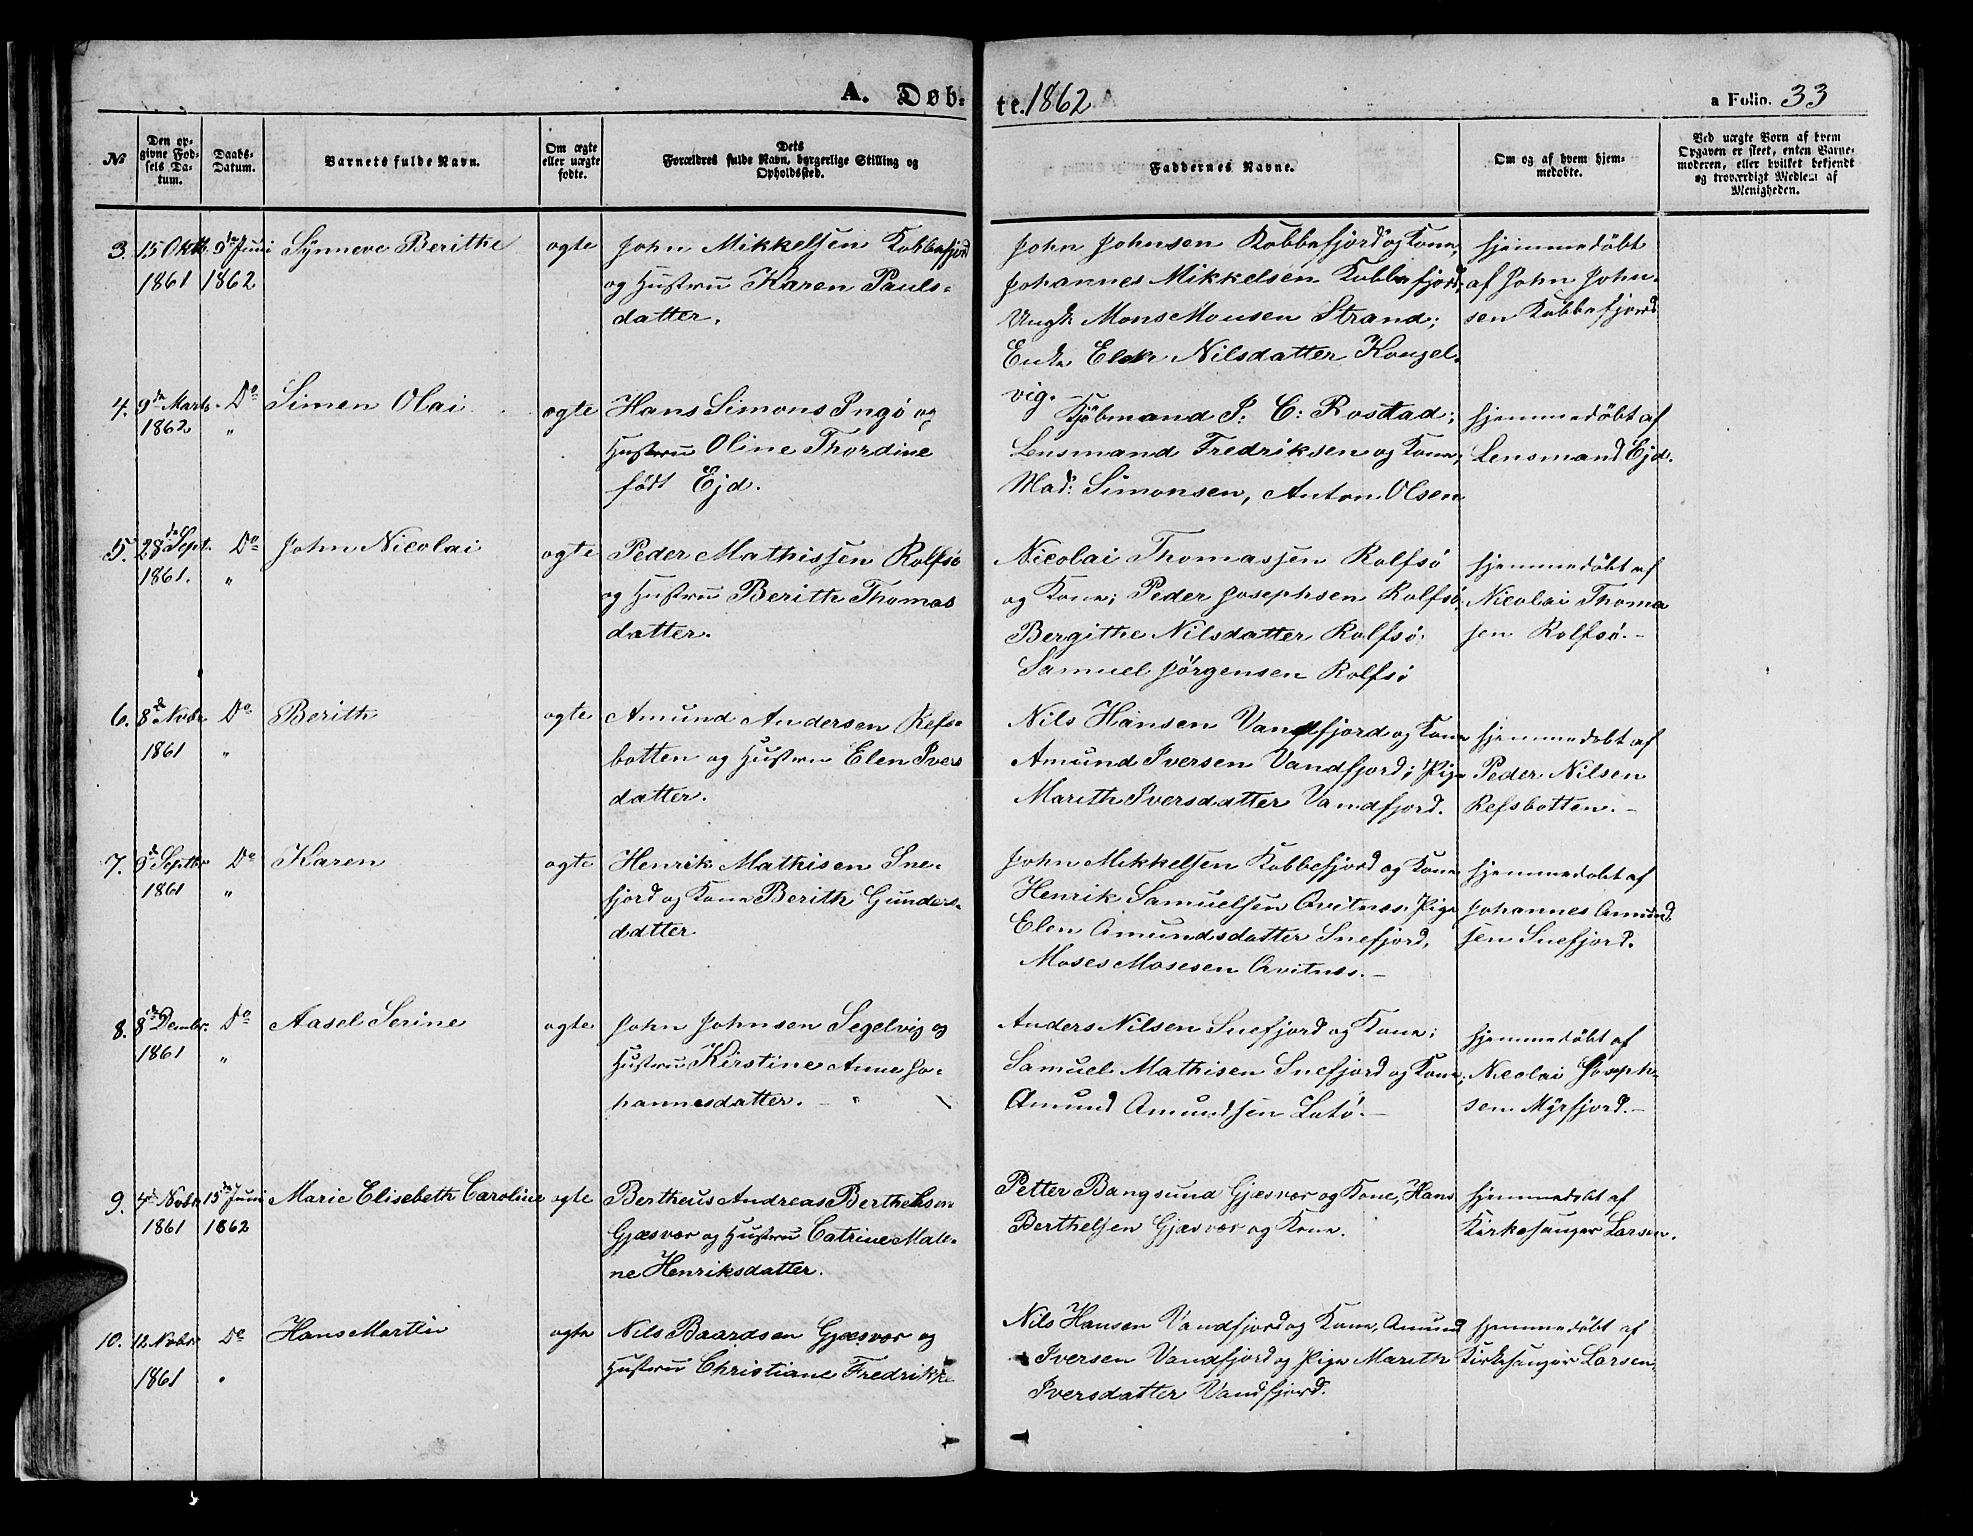 A. Døb-
te. 1862
a Folio. 33
№
Den op-
givne Fød-
sels Da-
tum.
Daabs-
Datum.
Barnets fulde Navn.
Om ægte
eller uægte
fødte.
Dets
Forældres fulde Navn, borgerlige Stilling og
Opholdssted.
Faddernes Navne.
Om og af hvem hjem-
medøbte.
Ved uægte Born af hvem
Opgaven er skeet, enten Barne-
moderen, eller hvilket bekjendt
og troværdigt Medlem af
Menigheden.
3.
15 Oktb.
1861
9de Juni
1862
Synneve Berithe
ægte
John Mikkelsen Kobbefjord
og Hustru Karen Pauls-
datter.
John Johnsen Kobbefjord og Kone,
Johannes Mikkelsen Kobbefjord,
Ungk: Mons Monsen Strand;
Enke Elek Nilsdatter Kongel-
vig.
hjemmedøbt
af John John-
sen Kobbefjord
4.
9de Marts
1862
Do
"
Simen Olai
ægte
Hans Simons Ingø og
Hustru Oline Thordine
født Ejd.
Kjøbmand P: C: Rostad;
Lensmand Fredriksen og Kone,
Mad: Simonsen, Anton Olsen
hjemmedøbt af
Lensmand Ejd.
5.
28de Sept.
1861.
Do
"
John Nicolai
ægte
Peder Mathissen Rolfsø
og Hustru Berith Thomas
datter.
Nicolai Thomassen Rolfsø
og Kone; Peder Josephsen Rolfsø,
Bergithe Nilsdatter Rolfsø.
Samuel Jørgensen Rolfsø
hjemmedøbt af
Nicolai Thoma
sen Rolfsø.-
6.
8de Novbr
1861
Do
"
Berith
ægte
Amund Andersen Refs-
botten og Hustru Elen Ivers
datter.
Nils Hansen Vandfjord og Kone
Amund Iversen Vandfjord; Pige
Marith Iversdatter Vandfjord.
hjemmedøbt af
Peder Nilsen
Refsbotten.-
7.
9de Septbr
1861
Do
"
Karen
ægte
Henrik Mathisen Sne-
fjord og Kone Berith Gunders-
datter
John Mikkelsen Kobbefjord og Kone
Henrik Samuelsen Qvitnes. Pige
Elen Amundsdatter Snefjord,
Moses Mosesen Qvitnes.-
hjemmedøbt af
Johannes Amund
sen Snefjord.
8.
8de Decmbr.
1861
Do
"
Aasel Serine
ægte
John Johnsen Segelvig og
Hustru Kirstine Anne Jo-
hannesdatter.
Anders Nilsen Snefjord og Kone;
Samuel Mathisen Snefjord og Kone,
Amund Amundsen Latø.-
hjemmedøbt af
Nicolai Joseph-
sen Myrfjord.-
9.
4de Novbr
1861
15de Juni
1862
Marie Elisebeth Caroline
ægte
Bertheus Andreas Berthelsen
Gjæsvær og Hustru Catrine Male-
ne Henriksdatter.
Petter Bangsund Gjæsvær og Kone, Hans
Berthelsen Gjæsvær og Kone.
hjemmedøbt af
Kirkesanger Larsen.
10.
12 Novbr
1861
Do
"
Hans Martin
ægte
Nils Baardsen Gjæsvær og
Hustru Christiane Fredrikke
Nils Hansen Vandfjord og Kone, Amund
Iversen Vandfjord og Pige Marith
Iversdatter Vandfjord.
hjemmedøbt af
Kirkesanger Larsen.